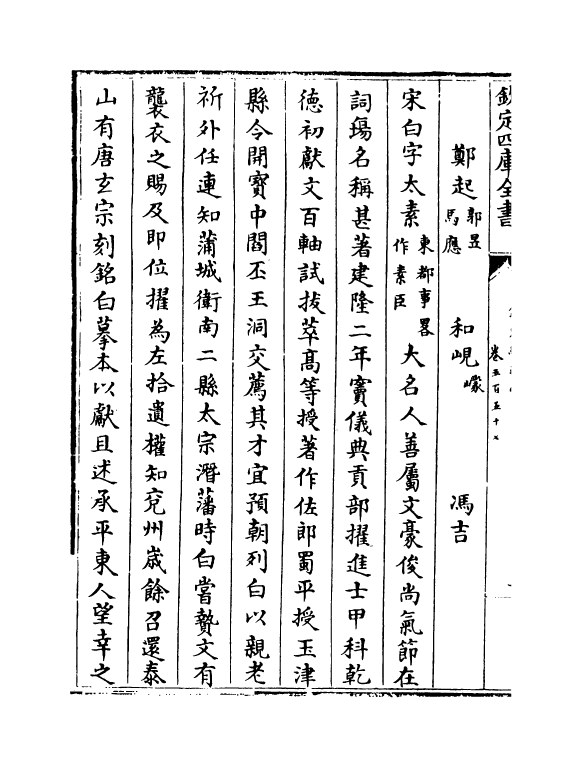 欽定四庫全書
卷五百五十七
鄭起 郭昱 馬應 和峴 㠓 馮吉
宋白字太素 東都事畧作素臣 大名人善屬文豪俊尚氣節在
詞場名稱甚著建隆二年竇儀典貢部擢進士甲科乾
徳初獻文百軸試拔萃髙等授著作佐郎蜀平授玉津
縣令開寳中閻丕王洞交薦其才宜預朝列白以親老
祈外任連知蒲城衛南二縣太宗潛藩時白嘗贄文有
襲衣之賜及即位擢為左拾遺權知兖州歲餘召還泰
山有唐玄宗刻銘白摹本以獻且述承平東人望幸之